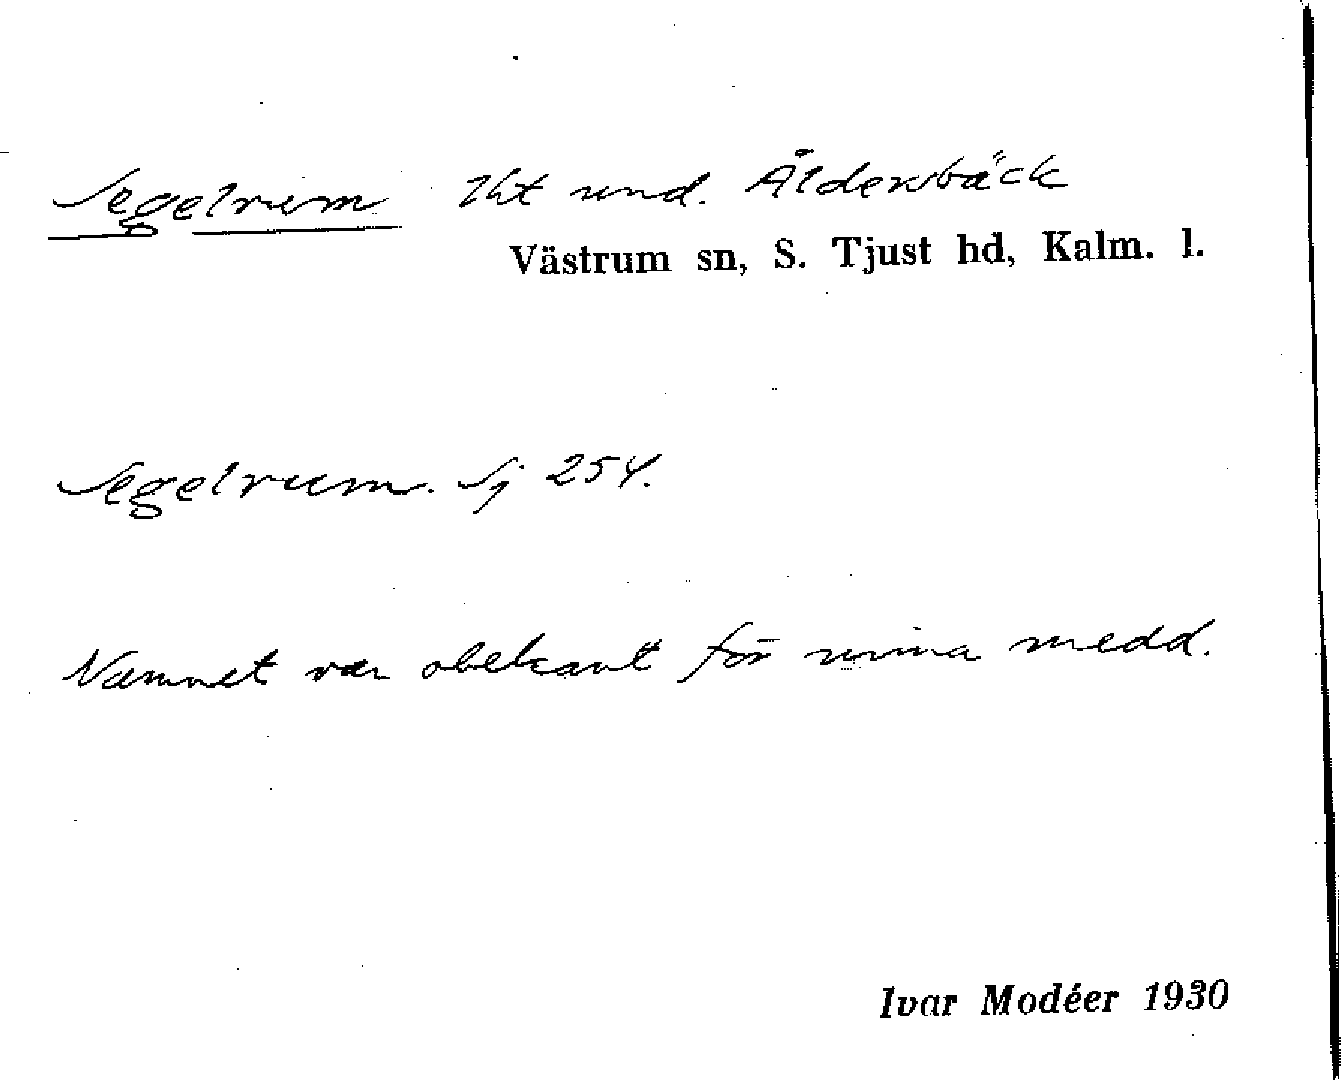 Segelrum Iht und. Åldersbäck
Västrum sn, S. Tjust hd, Kalm. l.
Segelrum. Sj 254.
Namnet var obekant för mina medd.
Ivar Modéer 1930